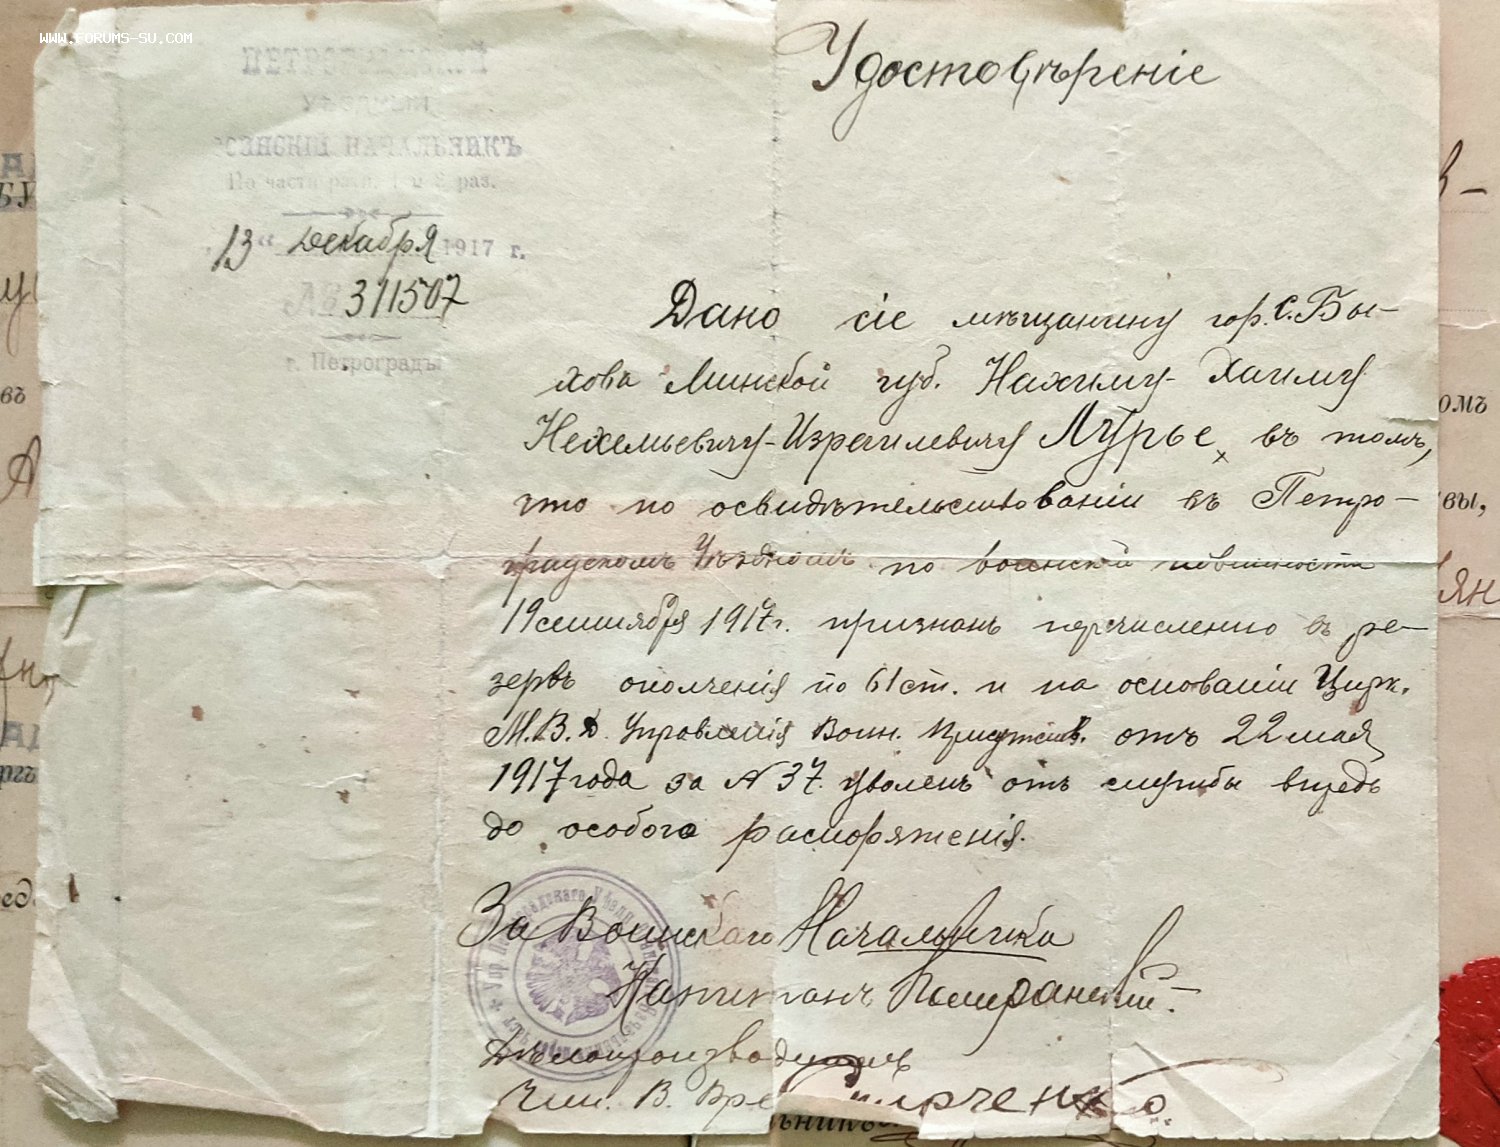 WWW.FORUMS-SU.COM
ПЕТРОГРАДСКІЙ
УѢЗДНЫЙ
ВОИНСКІЙ НАЧАЛЬНИКЪ
По части расп. 1 и 2 раз.
13 “ Декабря 1917 г.
№ 311507
г. Петроградъ
Удостовѣреніе
Дано сіе мѣщанину гор. С. Бы-
хова Минской губ. Нахиму-Хаиму
Нехемьевичу-Израилевичу Лурье, въ томъ,
что по освидѣтельствованіи въ Петро-
градскомъ Уѣздномъ по воинской повинности
19 сентября 1917 г. признанъ перечисленію въ ре-
зервъ ополченія по 61 ст. и на основаніи Цирк.
М.В.Д. Управленія Воин. Повинности. отъ 22 мая
1917 года за № 37. уволенъ отъ службы впредь
до особого распоряженія.
За Воинскаго Начальника
Капитанъ
Дѣлопроизводитель
Чин. В. Вре
ьникъ